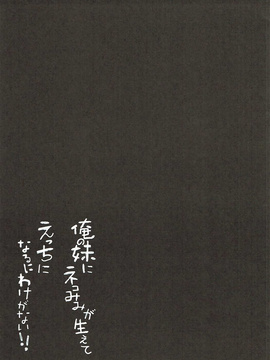 俺の妹にネコみみが生えて
えっちに
なるわけがない!!